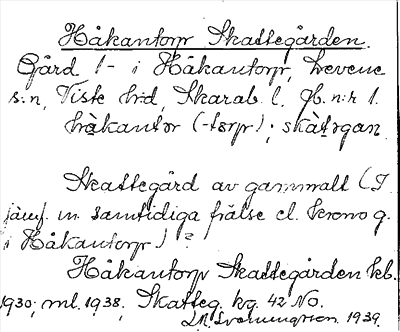 Håkantorp Skattegården.
Gård 1 - i Håkantorp, Levene
s:n, Viste hd, Skarab. l. Jb. n:r 1.
håkantor (-tårp); skàtgan
Skattegård av gammalt (I
jämf. m. samtidiga frälse el. krono g.
i Håkantorp) ?
Håkantorp Skattegården kb.
1930; ml. 1938, Skatteg. kg. 42 NO.
1939.